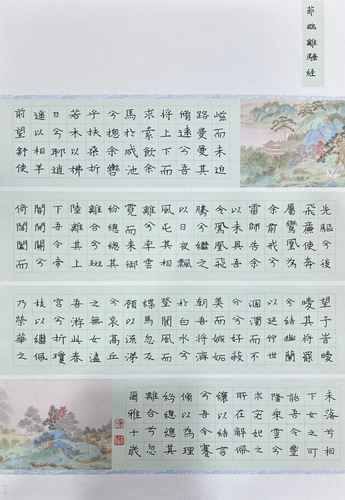 節臨離騷經
崦而未迫
路曼曼其
脩遠兮吾
將上下而
求索飲余
馬於咸池
兮揔余轡
乎扶桑折
若木以拂
日兮聊逍
遙以相羊
前望舒使
先驅兮後
飛廉使奔
屬鸞凰為
余前戒兮
雷師告余
以未具吾
令鳳凰飛
騰兮繼之
以日夜飄
風屯其相
離兮率雲
霓而來御
紛總總其
離合兮斑
陸離其上
下吾令帝
閽開關兮
倚閶闔而
望予時曖
曖其將罷
兮結幽蘭
以延佇世
溷濁而不
分兮好蔽
美而嫉妒
朝吾將濟
於白水兮
登閬風而
緤馬忽反
顧以流涕
兮哀高丘
之無女溘
吾游此春
宮兮折瓊
枝以繼佩
乃榮華之
未落兮相
下女之可
詒吾令豐
隆乘雲兮
求宓妃之
所在解佩
纕以結言
兮吾令蹇
脩以為理
紛總總其
離合兮忽
爾雅十歲